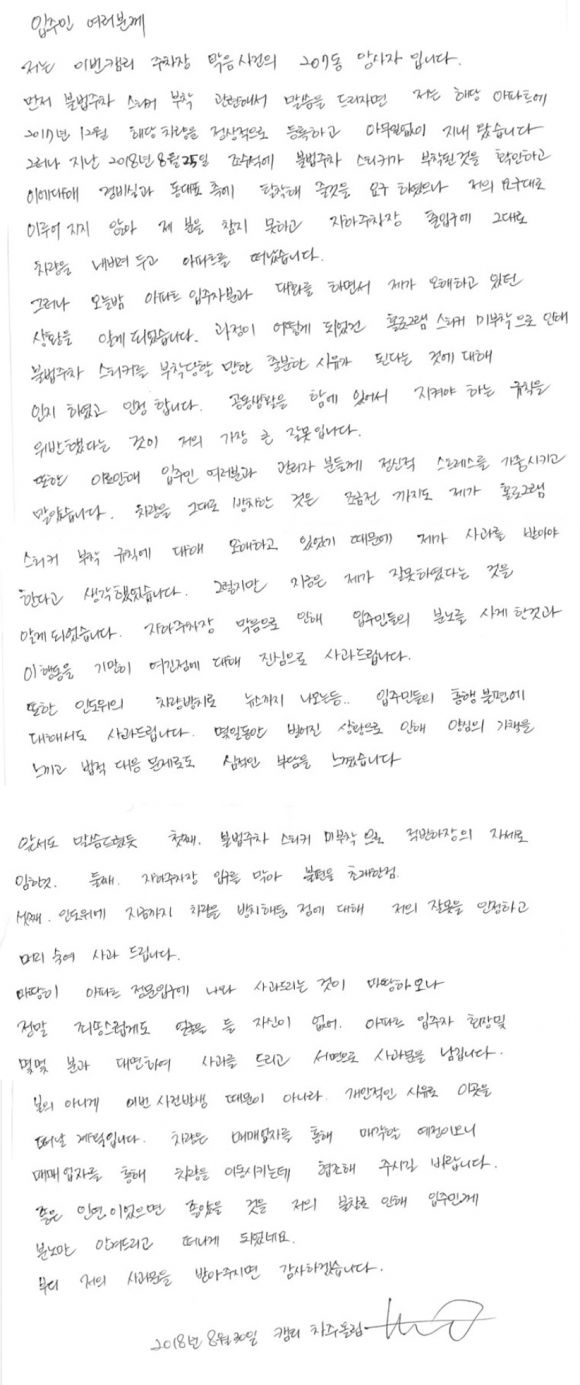 입주민 여러분께
저는 이번캠리 주차장 막음사건의 207동 당사자 입니다.
먼저 불법주차 스티커 부착 관련해서 말씀을 드리자면 저는 해당 아파트에
2017년 12월 해당차량을 정상적으로 등록하고 아무일없이 지내 왔습니다
그러나 지난 2018년 8월 25일 조수석에 불법주차 스티커가 부착된것을 확인하고
이에대해 경비실과 동대표 측에 탈착해 줄것을 요구 하였으나 저의 요구대로
이루어 지지 않아 제 분을 참지 못하고 지하주차장 출입구에 그대로
차량을 내버려 두고 아파트를 떠났습니다.
그러나 오늘밤 아파트 입주자분과 대화를 하면서 제가 오해하고 있던
상황을 알게 되었습니다. 과정이 어떻게 되었건 홀로그램 스티커 미부착으로 인해
불법주차 스티커를 부착당할 만한 충분한 사유가 된다는 것에 대해
인지 하였고 인정 합니다. 공동생활을 함에 있어서 지켜야 하는 규칙을
위반했다는 것이 저의 가장 큰 잘못입니다.
또한 이로인해 입주민 여러분과 관리자 분들께 정신적 스트레스를 가중시키고
말았습니다. 차량을 그대로 방치한 것은 조금전 까지도 제가 홀로그램
스티커 부착 규칙에 대해 오해하고 있었기 때문에 제가 사과를 받아야
한다고 생각했었습니다. 그렇지만 지금은 제가 잘못하였다는 것을
알게되었습니다. 지하주차장 막음으로 인해 입주민들의 분노를 사게 한것과
이행동을 기망이 여긴점에 대해 진심으로 사과드립니다.
또한 인도위의 차량방치로 뉴스까지 나오는등.. 입주민들의 통행불편에
대해서도 사과드립니다. 몇일동안 벌어진 상황으로 인해 양심의 가책을
느끼고 법적 대응 문제로도 심적인 부담을 느꼈습니다
앞서도 말씀드렸듯 첫째. 불법주차 스티커 미부착 으로 적반하장의 자세로
임한것. 둘째. 지하주차장 입구를 막아 불편을 초래한점.
셋째. 인도위에 지금까지 차량을 방치해둔 점에 대해 저의 잘못을 인정하고
머리 숙여 사과 드립니다.
마땅히 아파트 정문입구에 나와 사과드리는 것이 마땅하오나
정말 죄송스럽게도 얼굴을 들 자신이 없어. 아파트 입주자 회장및
몇몇 분과 대면하여 사과를 드리고 서면으로 사과문을 남깁니다.
본의 아니게 이번 사건발생 때문이 아니라. 개인적인 사유로 이곳을
떠날 계획입니다. 차량은 매매업자를 통해 매각할 예정이오니
매매업자를 통해 차량을 이동시키는데 협조해 주시길 바랍니다.
좋은 인연이었으면 좋았을 것을 저의 불찰로 인해 입주민께
분노만 안겨드리고 떠나게 되었네요.
부디 저의 사과문을 받아주시면 감사하겠습니다.
2018년 8월 30일 캠리 차주올림